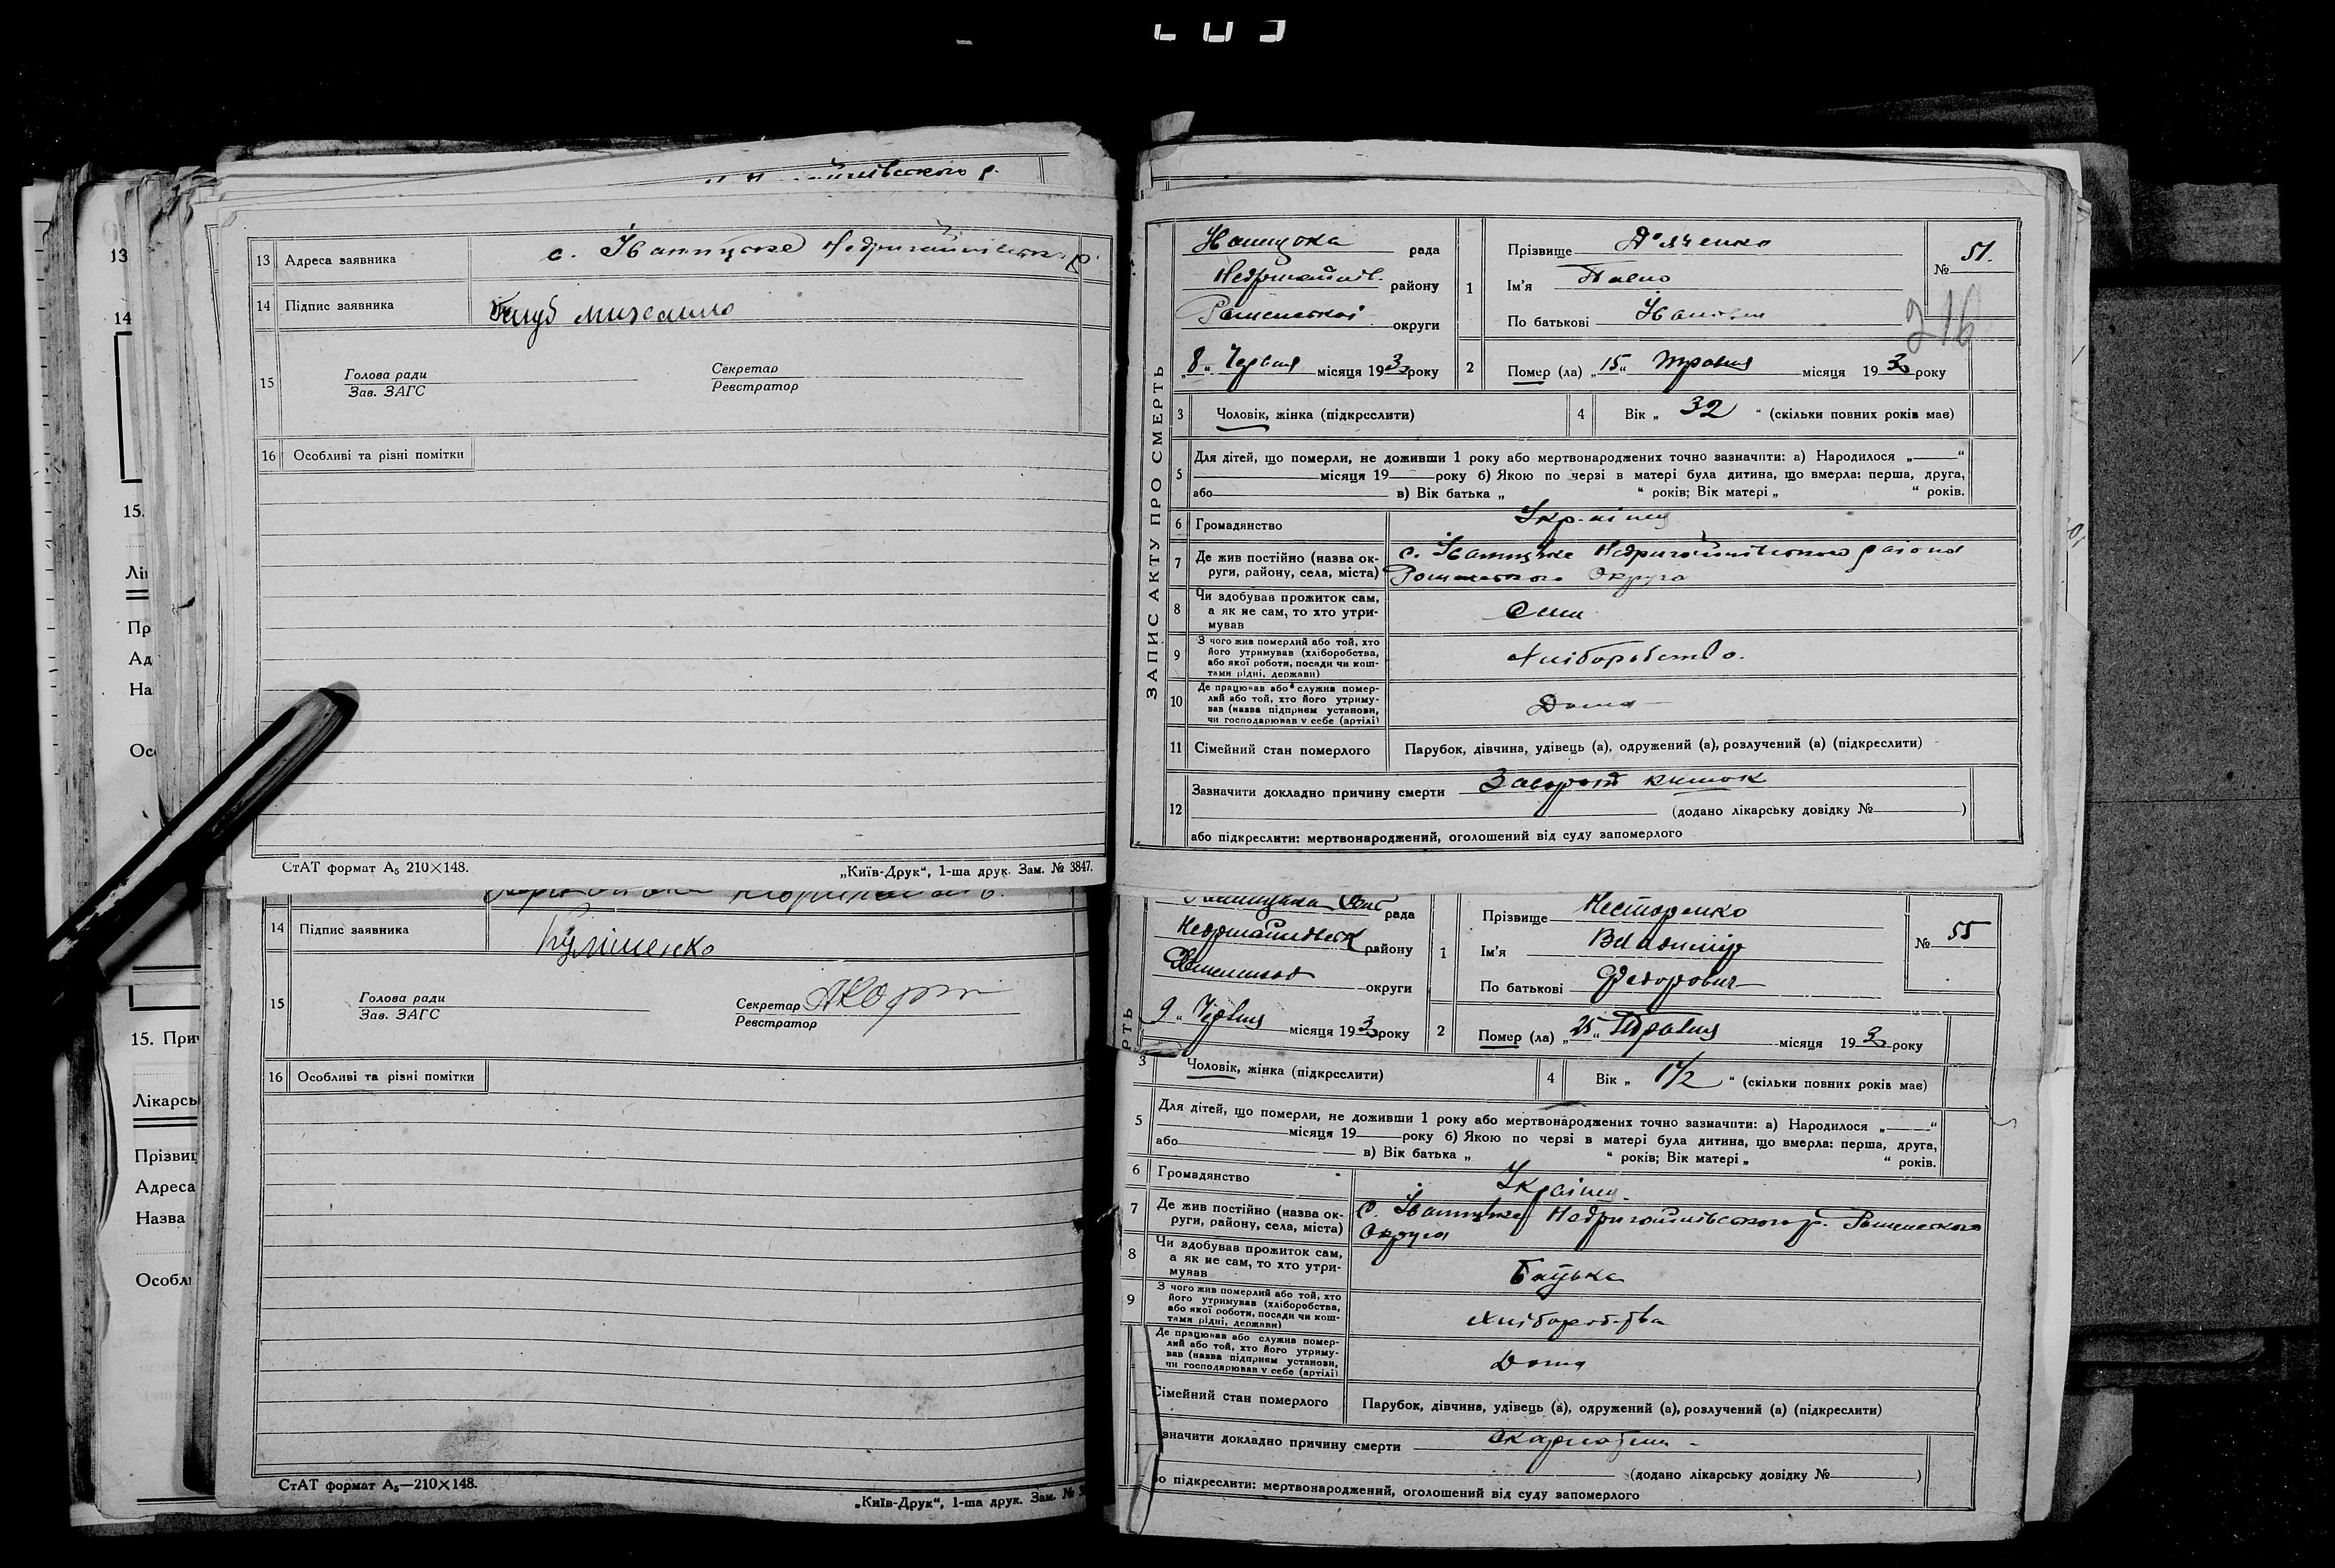 13 Адреса заявника с. Іваницьке Недригайлівськ. р.
14 Підпис заявника Михайло
15 Голова ради Секретар
Зав. ЗАГС Реєстратор
16 Особливі та різні помітки
СтАТ формат А₅ 210×148. „Київ-Друк“, 1-ша друк. Зам. № 3847.
14 Підпис заявника
15 Голова ради Секретар
Зав. ЗАГС Реєстратор
16 Особливі та різні помітки
СтАТ формат А₅—210×148.
„Київ-Друк“, 1-ша друк. Зам. №
13
14
15.
Лі
Пр
Ад
На
Ос
15. При
Лікарсь
Прізвищ
Адреса
Назва
Особл
ЗАПИС АКТУ ПРО СМЕРТЬ
рада
Недригайлів. району
Роменської округи
„8“ Червня місяця 193 року
1 Прізвище Дяченко
Ім'я Павло
По батькові Іванович
№ 51.
216
2 Помер (ла) „15“ травня місяця 193 року
3 Чоловік, жінка (підкреслити) 4 Вік „ 32 “ (скільки повних років має)
5 Для дітей, що померли, не доживши 1 року або мертвонароджених точно зазначити: а) Народилося „ “
місяця 19 року б) Якою по черзі в матері була дитина, що вмерла: перша, друга,
або в) Вік батька „ “ років; Вік матері „ “ років.
6 Громадянство Україн
7 Де жив постійно (назва округи, району, села, міста) с. Іваницьке Недригайлівського району
Роменского Округа
8 Чи здобував прожиток сам, а як не сам, то хто утримував Сам
9 З чого жив померлий або той, хто його утримував (хліборобства, або якої роботи, посади чи коштами рідні, держави) Хліборобство.
10 Де працював або служив померлий або той, хто його утримував (назва підприєм установи, чи господарював у себе (артілі) Дома
11 Сімейний стан померлого Парубок, дівчина, удівець (а), одружений (а), розлучений (а) (підкреслити)
12 Зазначити докладно причину смерти Заворот кишок
(додано лікарську довідку № )
або підкреслити: мертвонароджений, оголошений від суду запомерлого
рада
району
округи
9 „ Червня місяця 193 року
1 Прізвище Нестеренко
Ім'я Владимир
По батькові Федорович
№ 55
2 Помер (ла) „25“ Травня місяця 193 року
3 Чоловік, жінка (підкреслити) 4 Вік „ 1½ “ (скільки повних років має)
5 Для дітей, що померли, не доживши 1 року або мертвонароджених точно зазначити: а) Народилося „ “
місяця 19 року б) Якою по черзі в матері була дитина, що вмерла: перша, друга,
або в) Вік батька „ “ років; Вік матері „ “ років.
6 Громадянство Україн
7 Де жив постійно (назва округи, району, села, міста) с. Іваницьке Недригайлівського р. Роменского
Округа
8 Чи здобував прожиток сам, а як не сам, то хто утримував Батька
9 З чого жив померлий або той, хто його утримував (хліборобства, або якої роботи, посади чи коштами рідні, держави) Хліборобства
Де працював або служив померлий або той, хто його утримував (назва підприєм установи, чи господарював у себе (артілі) Дома
Сімейний стан померлого Парубок, дівчина, удівець (а), одружений (а), розлучений (а) (підкреслити)
значити докладно причину смерти скарлатина
(додано лікарську довідку № )
бо підкреслити: мертвонароджений, оголошений від суду запомерлого